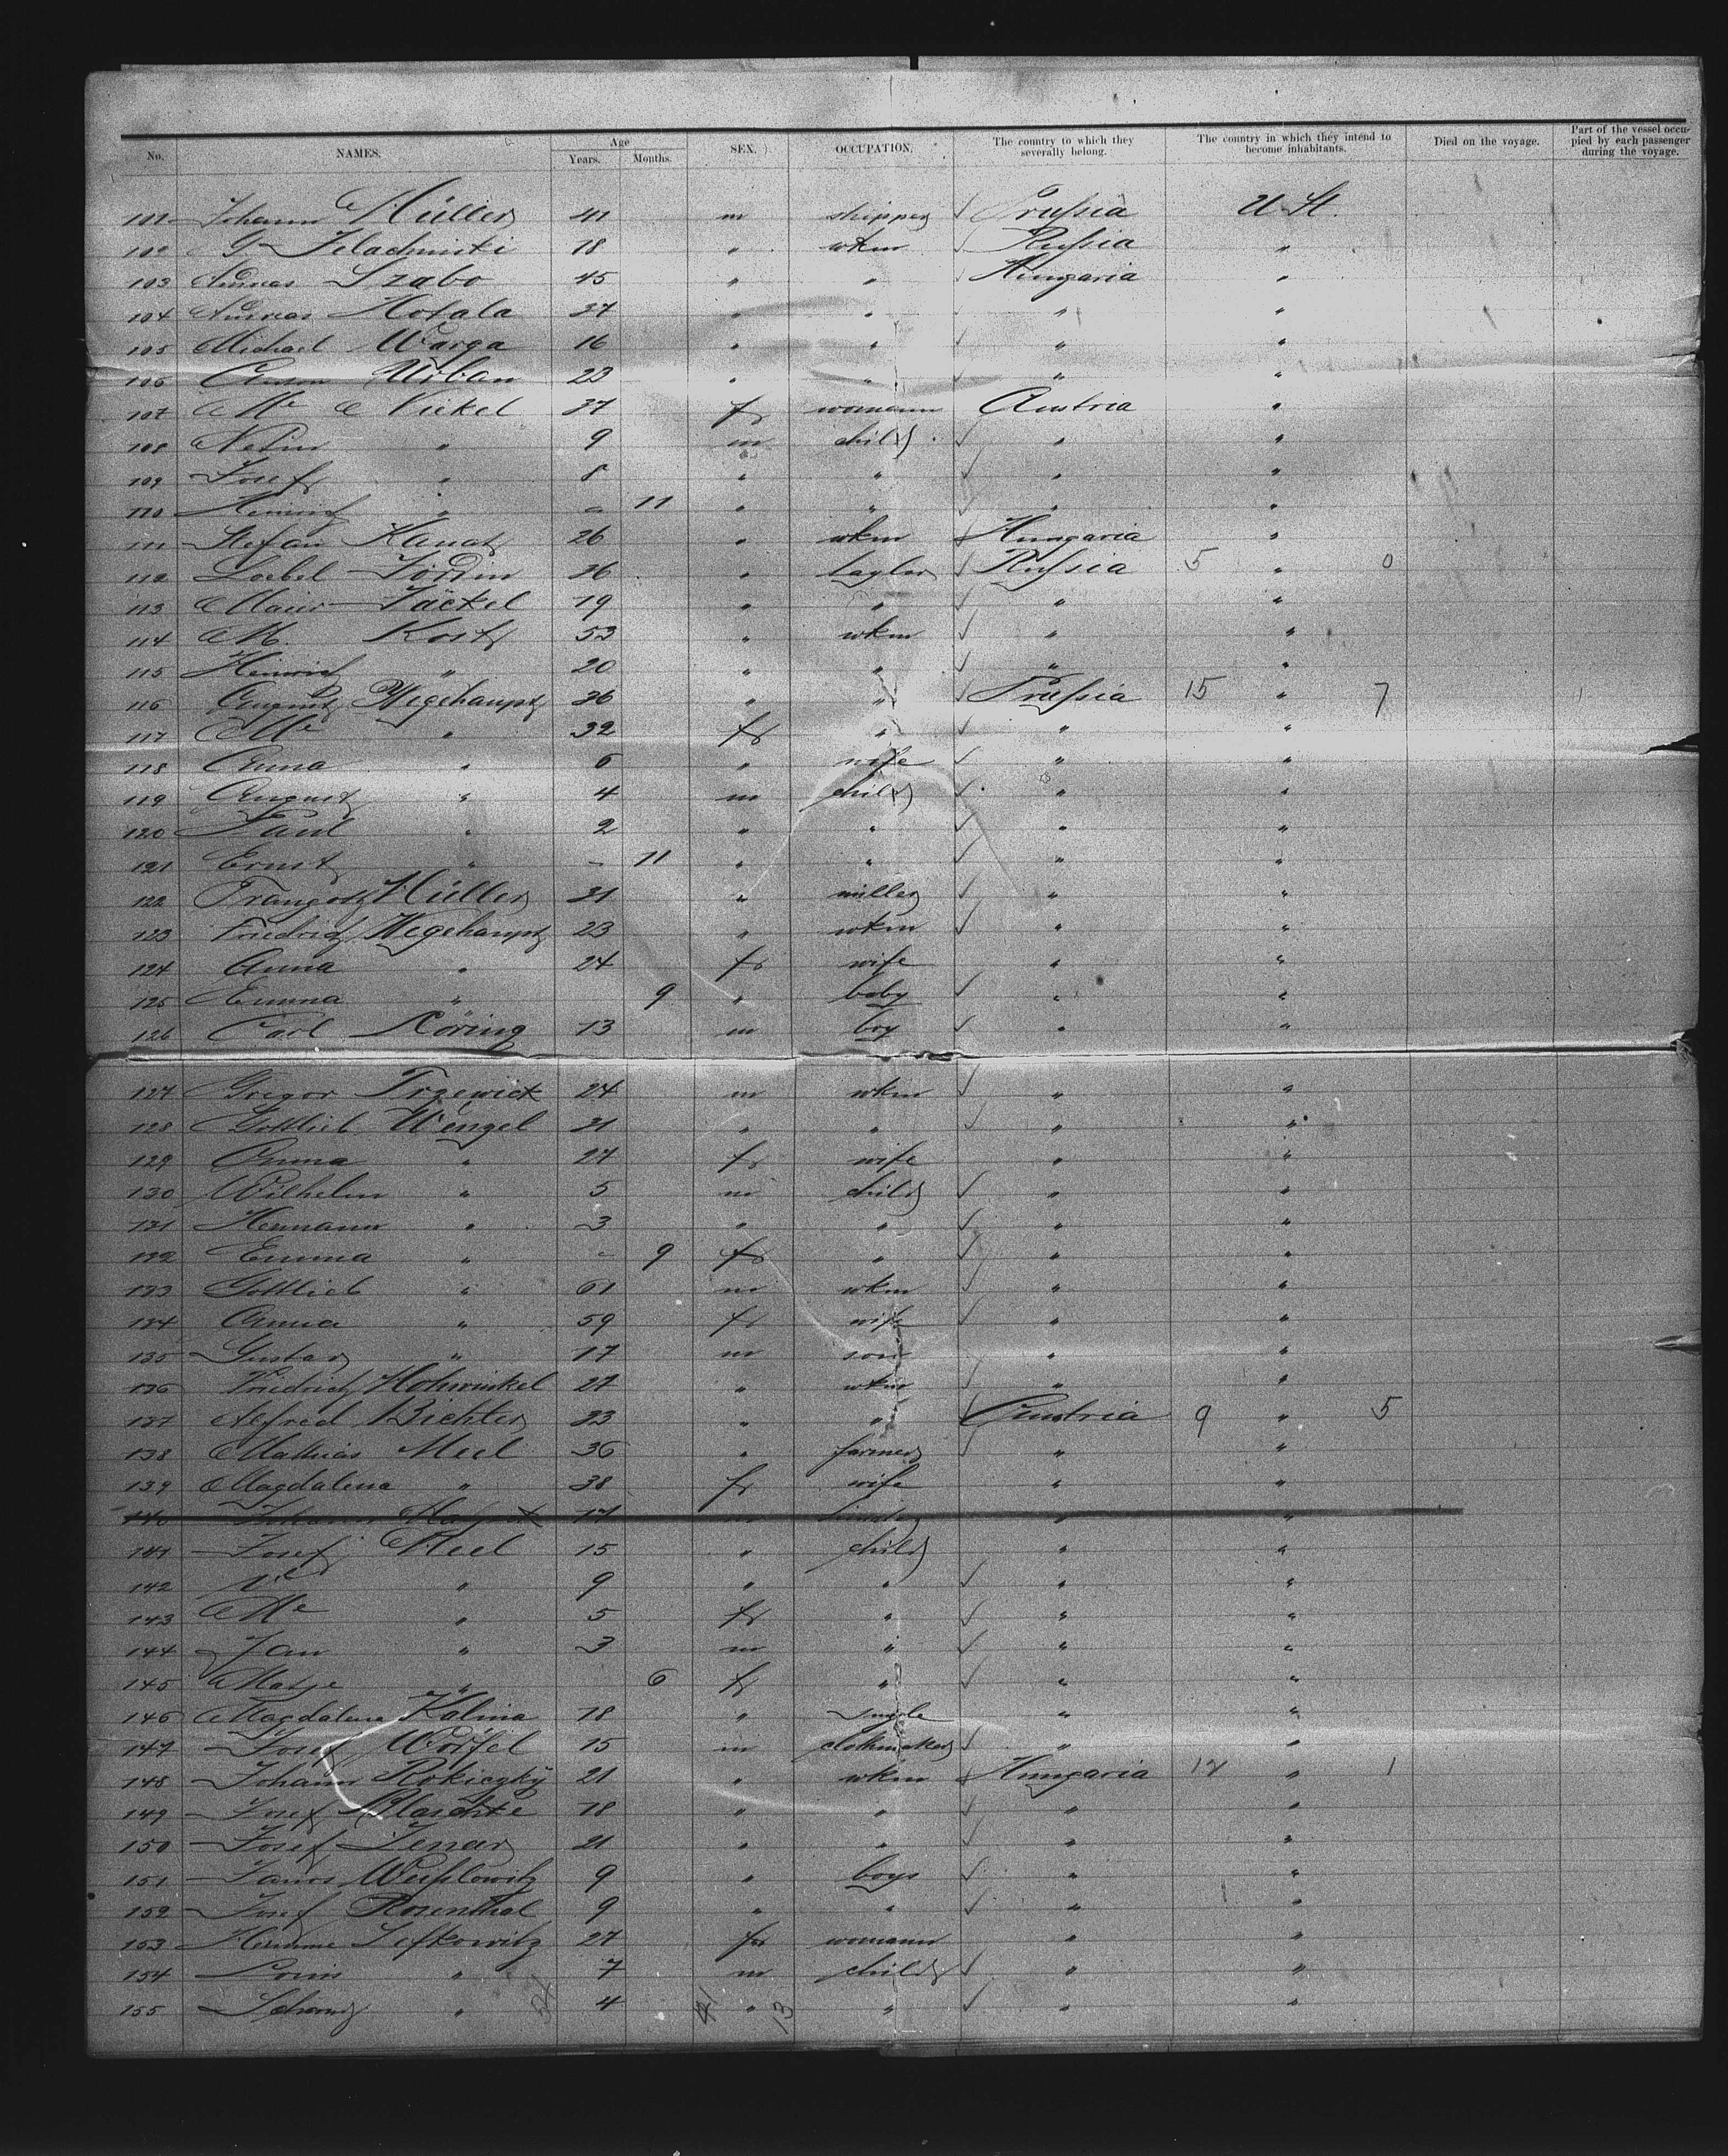 No. NAMES. Age Years. Months. SEX. OCCUPATION. The country to which they severally belong. The country in which they intend to become inhabitants. Died on the voyage. Part of the vessel occupied by each passenger during the voyage.
101 Johann Müller 41 m shipper Prussia U. St.
102 G 18 " wkm Russia "
103 Andreas Szabo 45 " " Hungaria "
104 Andreas 37 " " " "
105 Michael Warga 16 " " " "
106 Urban 23 " " " "
107 Me 37 f womann Austria "
108 " 9 m child " "
109 Josef " 8 " " " "
110 Heinrich " - 11 " " " "
111 Stefan 26 " wkm Hungaria "
112 Loebel 36 " taylor Russia 5 " 0
113 Jäckel 19 " " " "
114 M. Kost 53 " wkm " "
115 Heinrich " 20 " " " "
116 August Wegehaupt 36 " " Prussia 15 " 7
117 Me " 32 f " " "
118 Anna " 6 " wife " "
119 August " 4 m child " "
120 Paul " 2 " " " "
121 Ernst " - 11 " " " "
122 Traugott Müller 31 " miller " "
123 Friedrich Wegehaupt 23 " wkm " "
124 Anna " 24 f wife " "
125 Emma " 9 " baby " "
126 Carl 13 m boy " "
127 Gregor Trzewick 24 m wkm " "
128 Gottlieb Wengel 31 " " " "
129 Anna " 27 f wife " "
130 Wilhelm " 5 m child " "
131 Hermann " 3 " " " "
132 Emma " - 9 f " " "
133 Gottlieb " 61 m wkm " "
134 Anna " 59 f wife " "
135 Gustav " 17 m son " "
136 Friedrich Hohwinkel 27 " wkm " "
137 Alfred 33 " " Austria 9 " 5
138 Mathias Meel 36 " farmer " "
139 Magdalena " 38 f wife " "
140 Johann 17 m " "
141 Josef Meel 15 " child " "
142 " 9 " " " "
143 Me " 5 f " " "
144 Jan " 3 m " " "
145 " 6 f " " "
146 Magdalena Kalina 18 " single " "
147 Josef Wörfel 15 m clothmaker " "
148 Johann Rokiczky 21 " wkm Hungaria 12 " 1
149 Josef 18 " " " "
150 Josef 21 " " " "
151 9 " boys " "
152 Josef Rosenthal 9 " " " "
153 Lefkowitz 27 f womann " "
154 Louis " 7 m child " "
155 " 4 " " " "
13